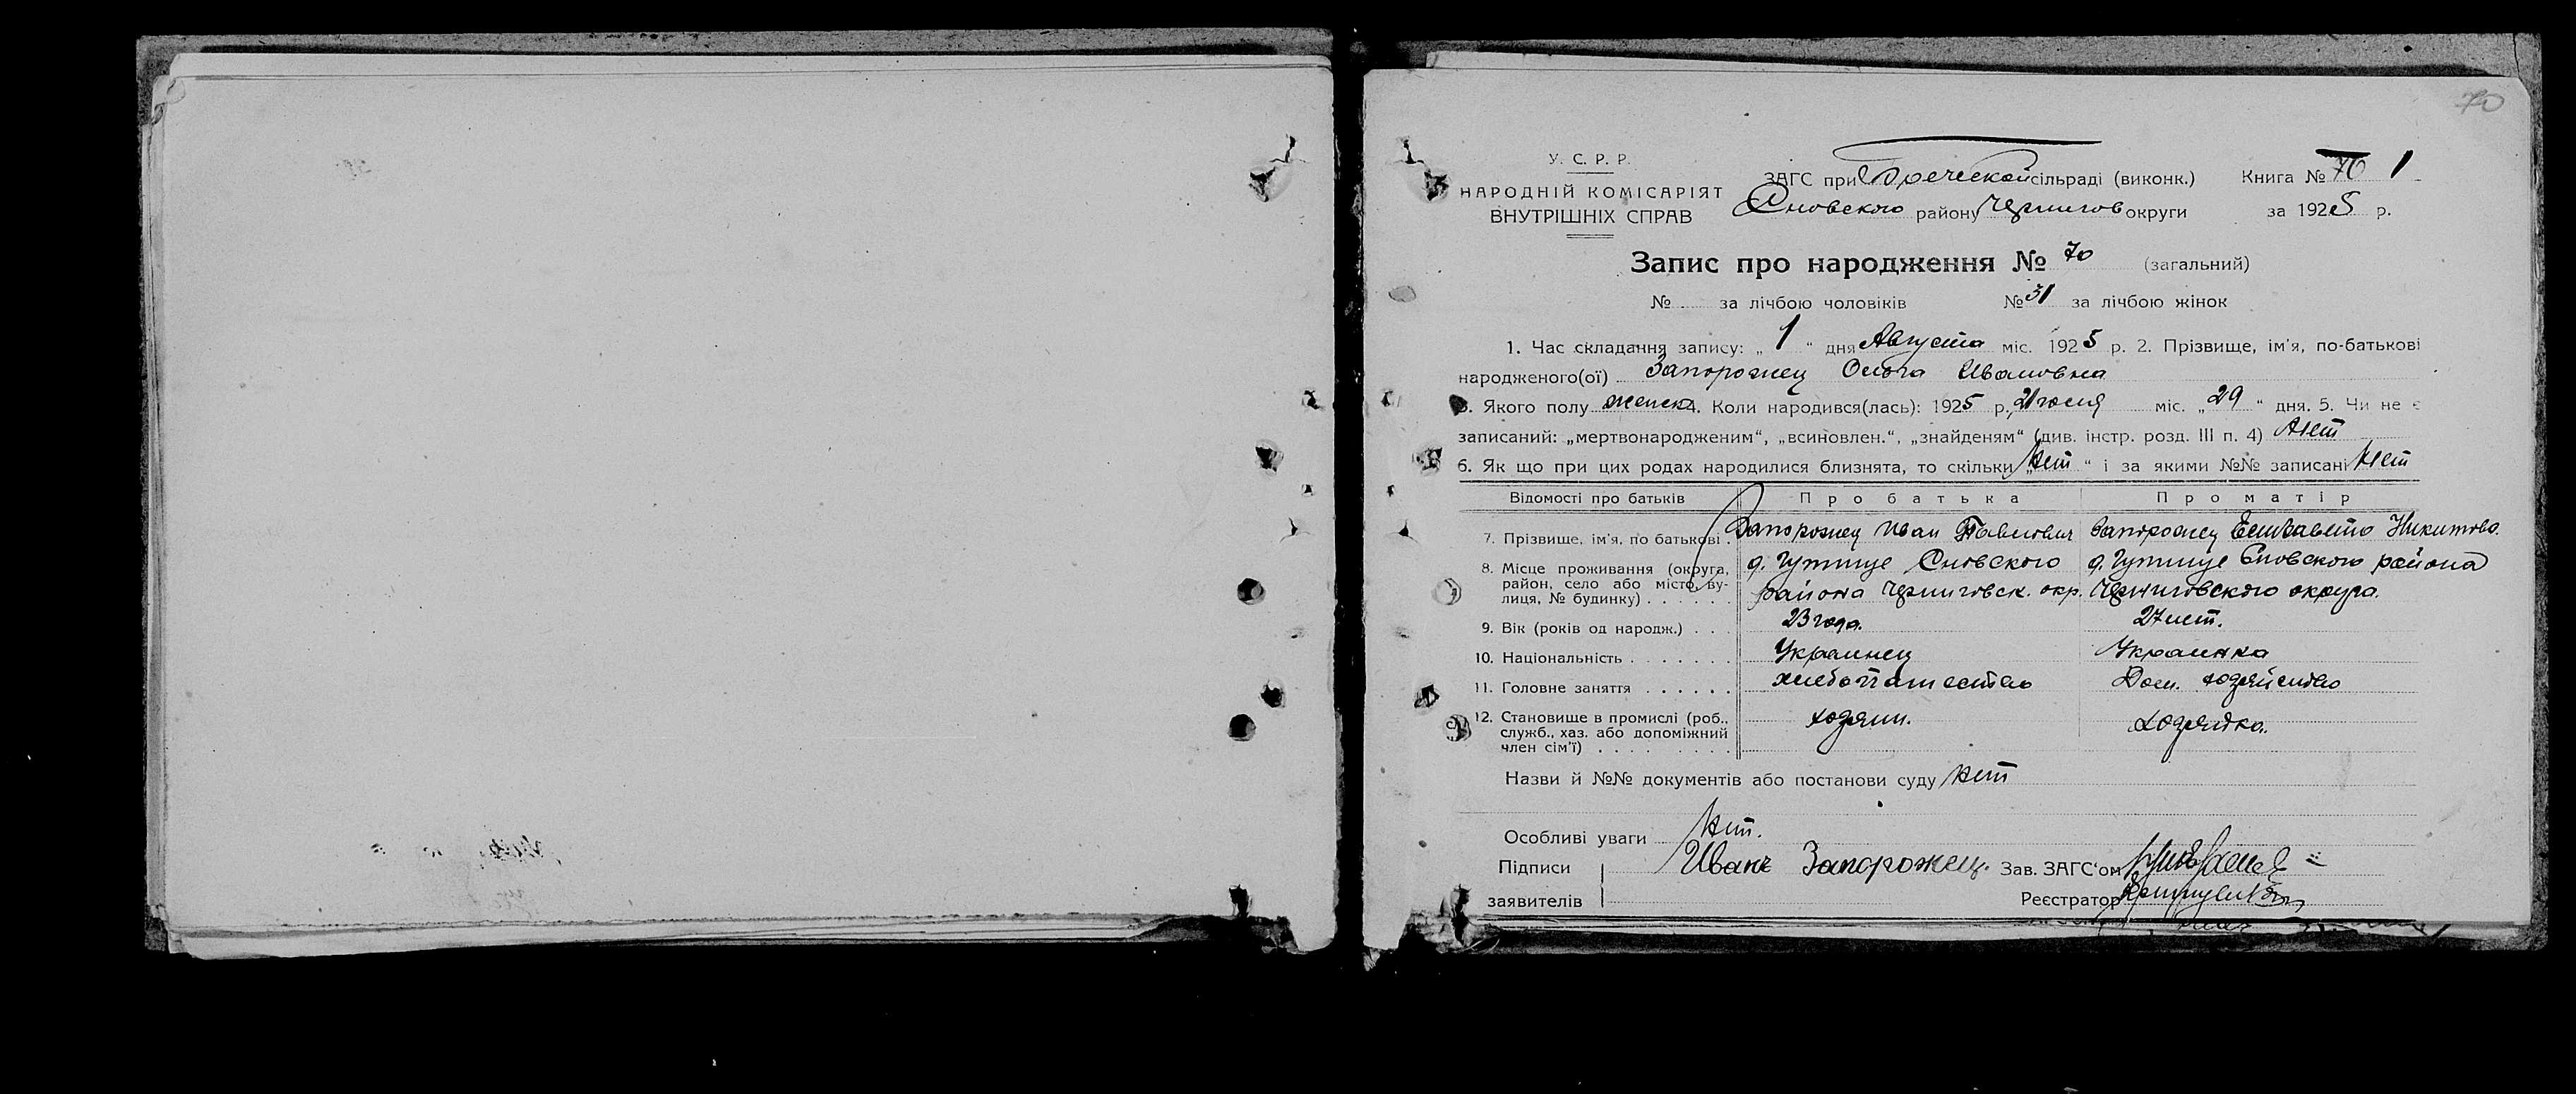 70
У. С. Р. Р.
НАРОДНІЙ КОМІСАРІЯТ
ВНУТРІШНІХ СПРАВ
ЗАГС при сільраді (виконк.) Книга № 70 1
Сновского району Чернигов округи за 1925 р.
Запис про народження № 70 (загальний)
№ за лічбою чоловіків № 31 за лічбою жінок
1. Час складання запису: „ 1 “ дня Августа міс. 1925 р. 2. Прізвище, ім'я, по-батькові
народженого(ої) Запорожец Ольга Ивановна
3. Якого полу женск 4. Коли народився(лась): 1925 р. Июля міс. „ 29 “ дня. 5. Чи не є
записаний: „мертвонародженим“, „всиновлен.“, „знайденям“ (див. інстр. розд. III п. 4) Нет
6. Як що при цих родах народилися близнята, то скільки „ Нет “ і за якими №№ записані Нет
Відомості про батьків Про батька Про матір
7. Прізвище, ім'я, по батькові . Запорожец Иван Павлович Запорожец Елизавета Никитова.
8. Місце проживання (округа, район, село або місто, вулиця, № будинку) . . . . . . д. Гутище Сновского района Черниговск. окр. д. Гутище Сновского района Черниговского округа.
9. Вік (років од народж.) . . . 23 года. 27 лет.
10. Національність . . . . . . . Украинец Украинка
11. Головне заняття . . . . . . хлебопашество Дом. хозяйство
12. Становище в промислі (роб., служб., хаз. або допоміжний член сім'ї) . . . . . . . . . хозяин. хозяйка.
Назви й №№ документів або постанови суду Нет
Особливі уваги Нет.
Підписи Иванъ Запорожец. Зав. ЗАГС'ом
заявителів Реєстратор